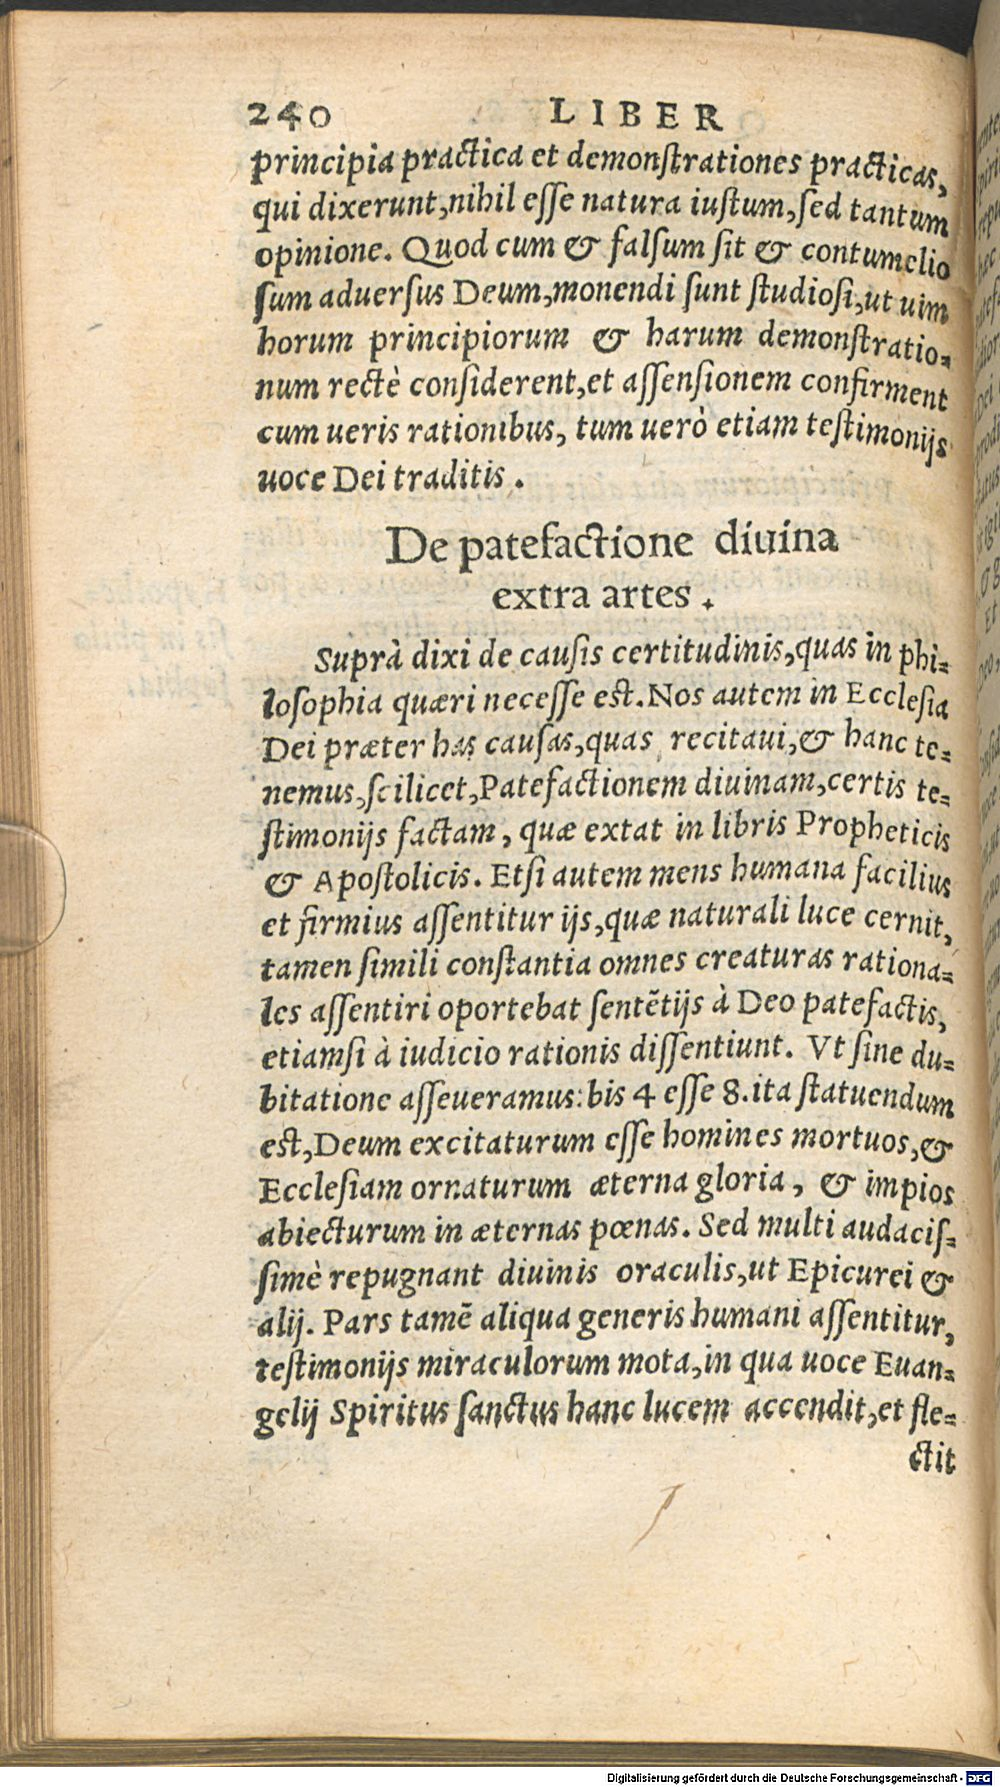 240 LIBER
principia practica et demonstrationes practicas,
qui dixerunt, nihil esse natura iustum, sed tantum
opinione. Quod cum & falsum sit & contumelio
sum aduersus Deum, monendi sunt studiosi, ut uim
horum principiorum & harum demonstratio-
num rectè considerent, et assensionem confirment
cum ueris rationibus, tum uerò etiam testimonijs
uoce Dei traditis.
De patefactione diuina
extra artes.
Suprà dixi de causis certitudinis, quas in phi-
losophia quæri necesse est. Nos autem in Ecclesia
Dei præter has causas, quas recitaui, & hanc te-
nemus, scilicet, Patefactionem diuinam, certis te-
stimonijs factam, quæ extat in libris Propheticis
& Apostolicis. Etsi autem mens humana facilius
et firmius assentitur ijs, quæ naturali luce cernit,
tamen simili constantia omnes creaturas rationa-
les assentiri oportebat sentētijs à Deo patefactis,
etiamsi à iudicio rationis dissentiunt. Vt sine du-
bitatione asseueramus: bis 4 esse 8. ita statuendum
est, Deum excitaturum esse homines mortuos, &
Ecclesiam ornaturum æterna gloria, & impios
abiecturum in æternas pœnas. Sed multi audacis-
simè repugnant diuinis oraculis, ut Epicurei &
alij. Pars tamē aliqua generis humani assentitur,
testimonijs miraculorum mota, in qua uoce Euan-
gelij Spiritus sanctus hanc lucem accendit, et fle-
ctit
Digitalisierung gefördert durch die Deutsche Forschungsgemeinschaft - DFG